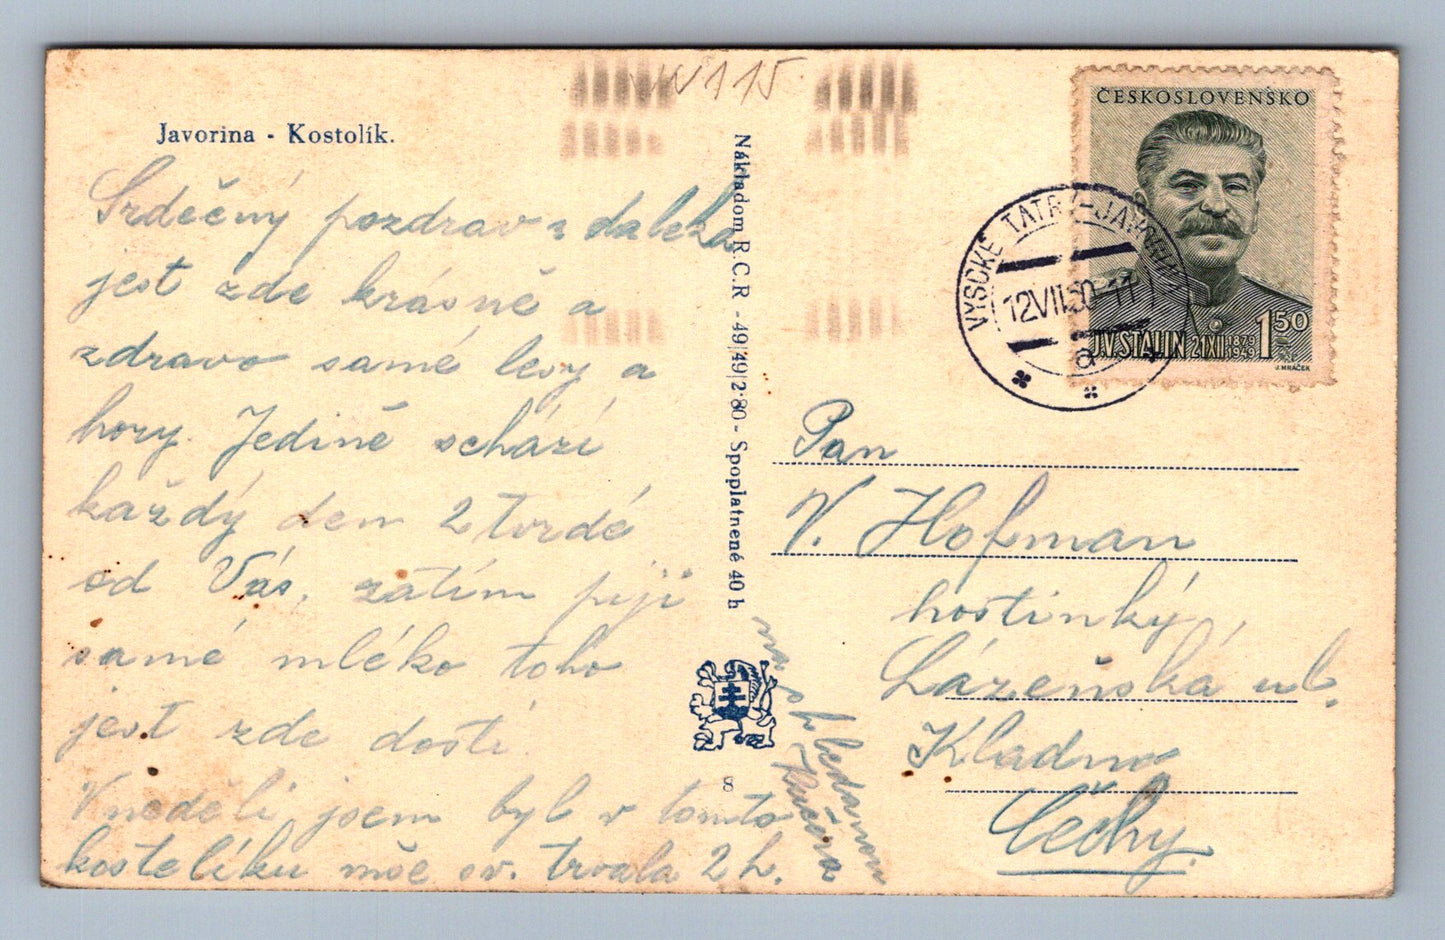 W115
Javorina - Kostolík.
Srdečný pozdrav z daleka
jest zde krásně a
zdravo samé lesy a
hory. Jedině schází
každý den 2 tvrdé
od Vás, zatím piji
samé mléko toho
jest zde dosti.
V neděli jsem byl v tomto
kostelíku mše sv. trvala 2 h.
na shledanou
Nákladom R.C.R - 49|49|2·80 - Spoplatnené 40 h
8
ČESKOSLOVENSKO
J.V. STALIN 21 XII 1879 1949 1 50
J. MRÁČEK
VYSOKÉ TATRY-JAVORINA
12.VII.50-11
a
Pan
V. Hofman
hostinký,
Lázeňská ul.
Kladno
Čechy.